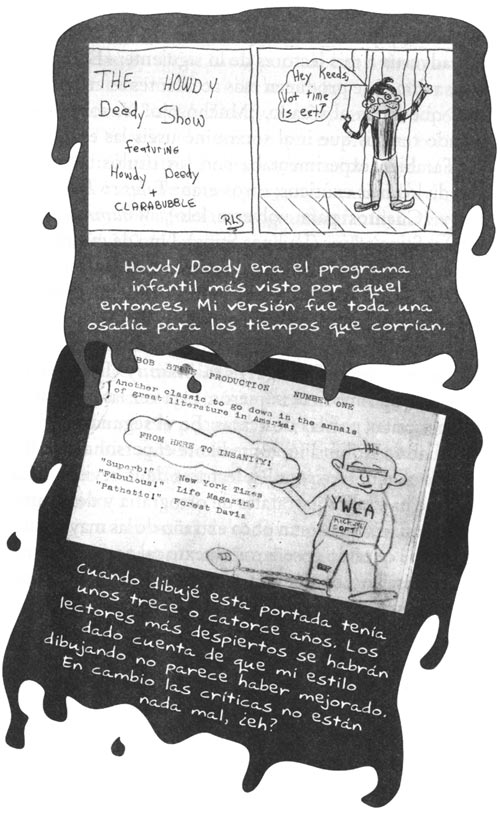 THE HOWDY
Deedy Show
featuring
Howdy Deedy
+
CLARABUBBLE
RLS
Hey Keeds,
Vot time
is eet?
Howdy Doody era el programa
infantil más visto por aquel
entonces. Mi versión fue toda una
osadía para los tiempos que corrían.
BOB PRODUCTION NUMBER ONE
Another classic to go down in the annals
of great literature in Amerka:
FROM HERE TO INSANITY!
"Superb!" New York Times
"Fabulous!" Life Magazine
"Pathetic!" Forest Davis
YWCA
SOFT
Cuando dibujé esta portada tenía
unos trece o catorce años. Los
lectores más despiertos se habrán
dado cuenta de que mi estilo
dibujando no parece haber mejorado.
En cambio las críticas no están
nada mal, ¿eh?